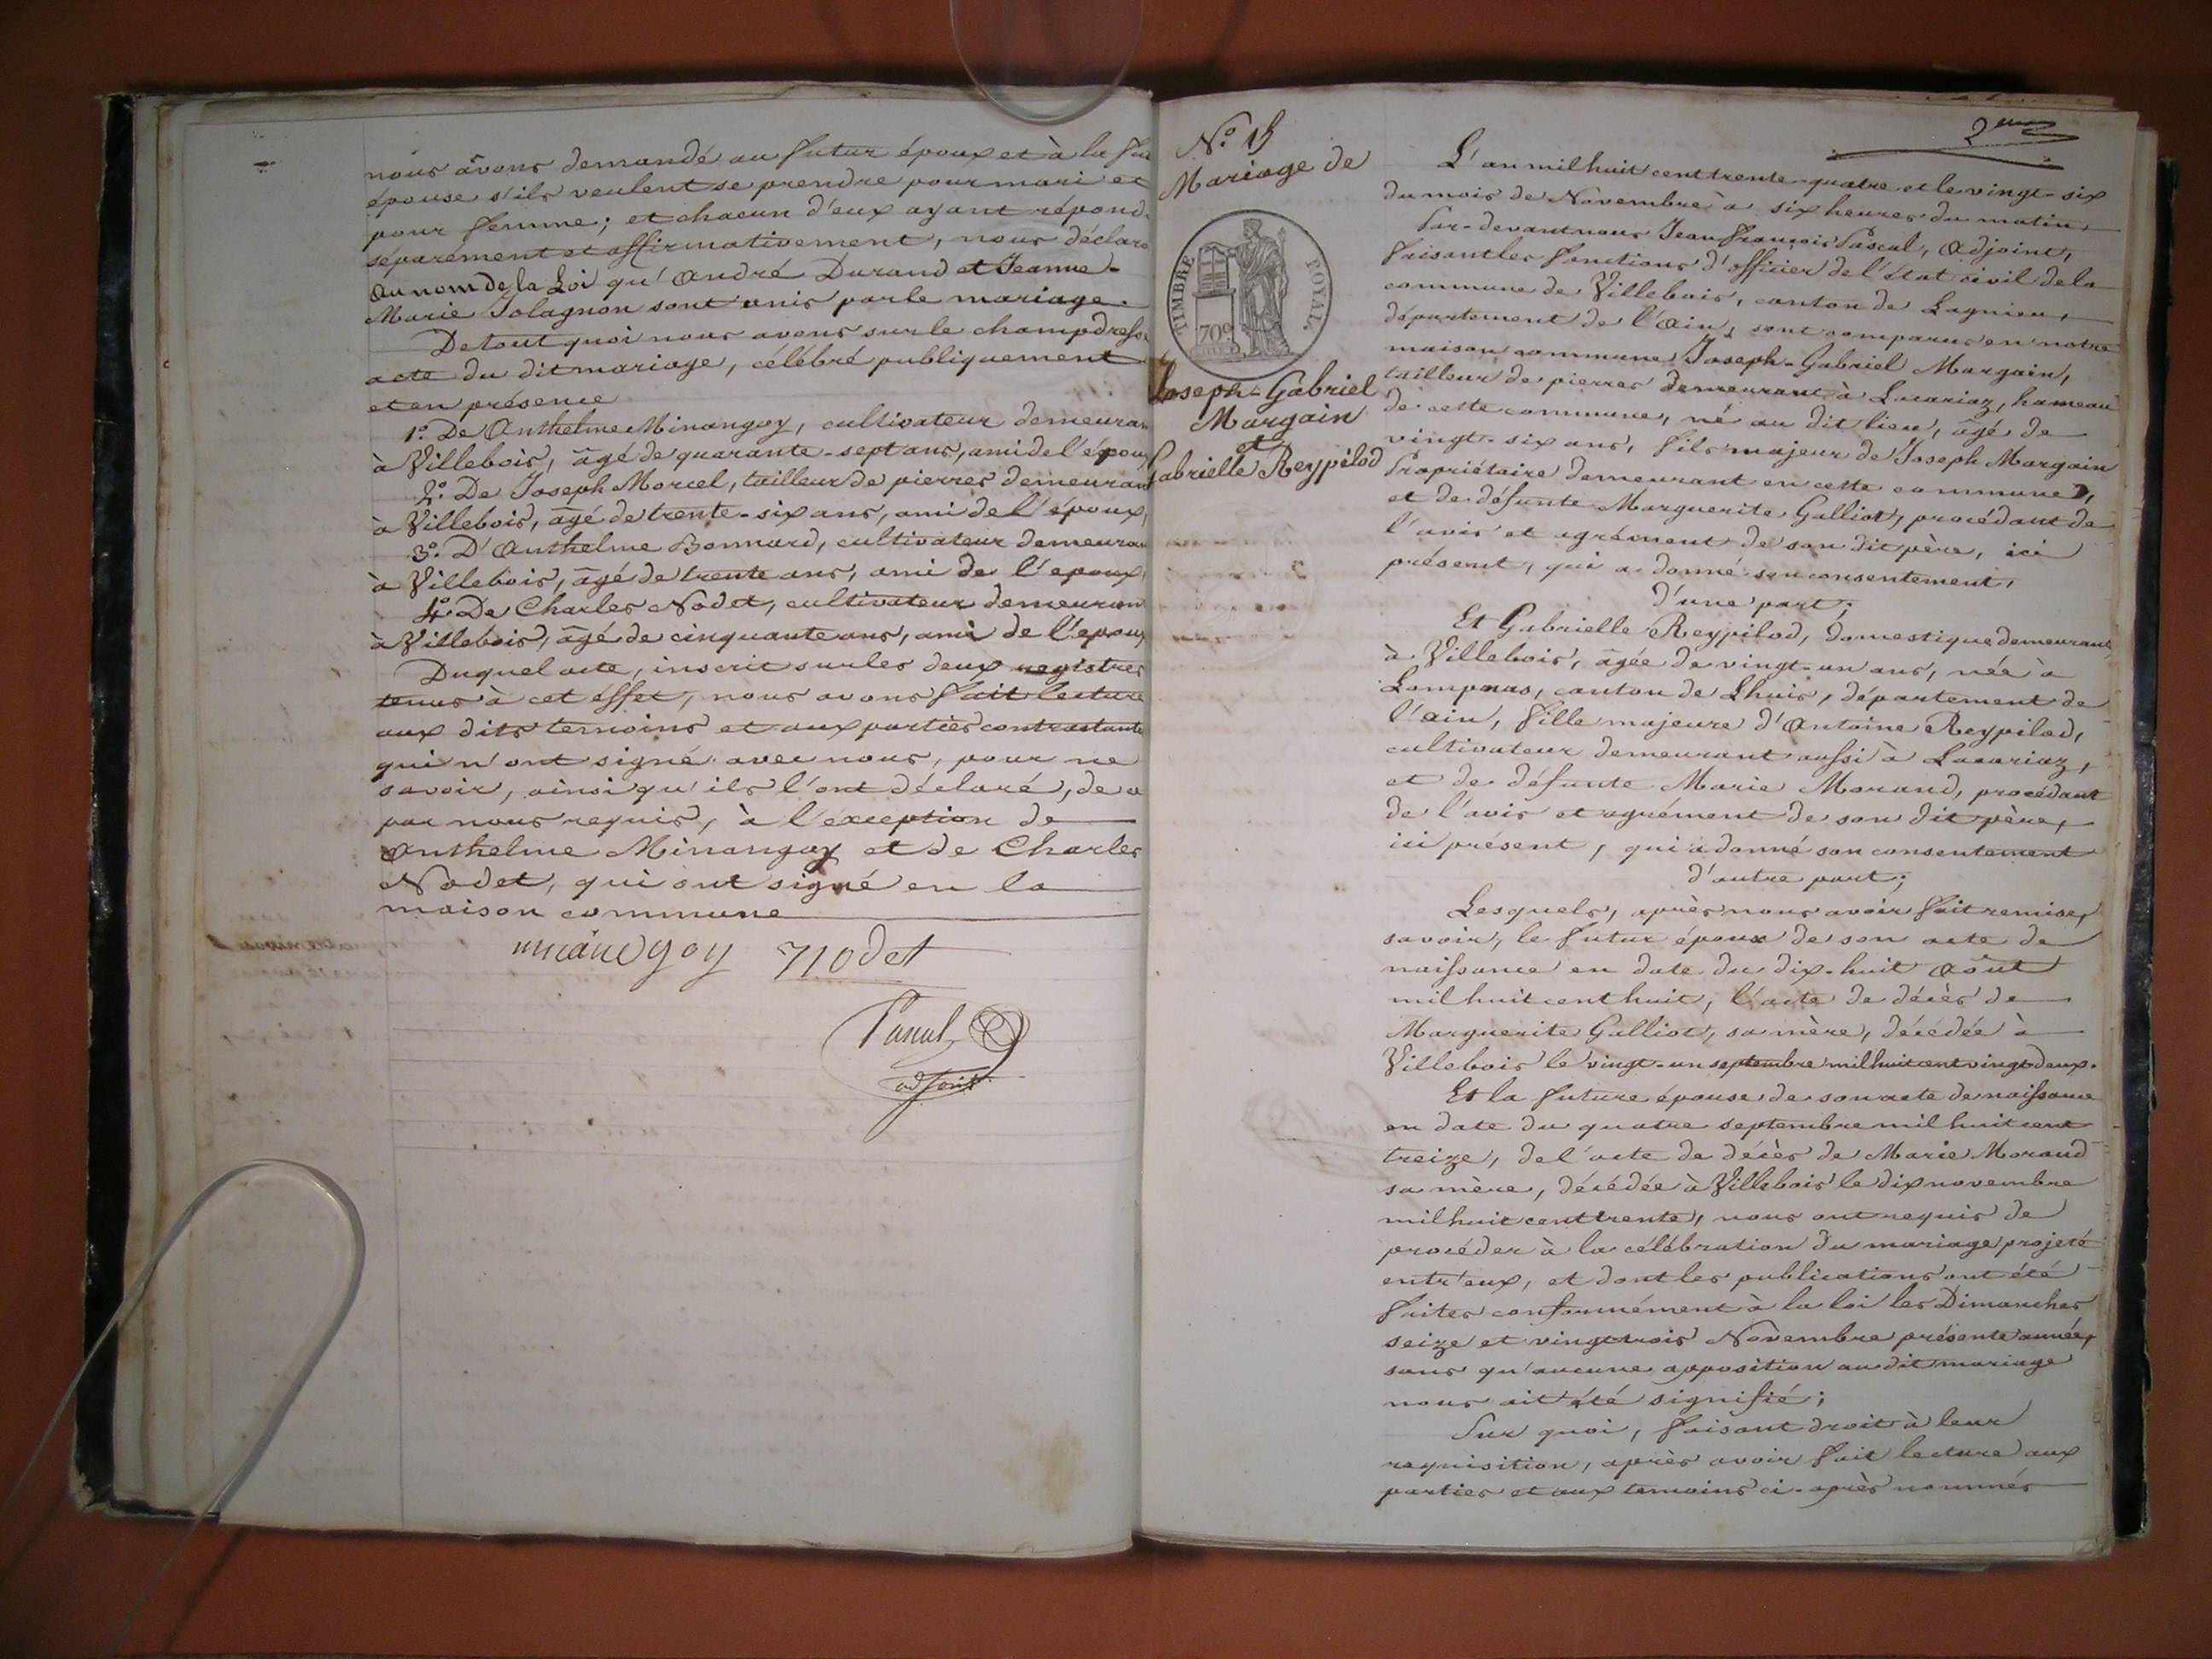 nous avons demandé au futur époux et à la fu
épouse s'ils veulent se prendre pour mari et
pour femme; et chacun d'eux ayant répond
séparément et affirmativement, nous déclaro
au nom de la Loi qu'André Durand et Jeanne-
Marie Jolagnon sont unis par le mariage.
De tout quoi nous avons sur le champ dressé
acte du dit mariage, célébré publiquement
et en présence
1º. De Anthelme Minangoy, cultivateur demeuran
à Villebois, âgé de quarante-sept ans, ami de l'époux
2º. De Joseph Morcel, tailleur de pierres demeuran
à Villebois, âgé de trente-six ans, ami de l'époux,
3º. D'Anthelme Bonnard, cultivateur demeuran
à Villebois, âgé de trente ans, ami de l'epoux,
4º. De Charles Nodet, cultivateur demeuran
à Villebois, âgé de cinquante ans, ami de l'epoux
Duquel acte, inscrit sur les deux registres
tenus à cet effet, nous avons fait lecture
aux dits temoins et aux parties contractante
qui n'ont signé avec nous, pour ne
savoir, ainsi qu'ils l'ont déclaré, de ce
par nous requis, à l'éxception de
Anthelme Minangoy et de Charles
Nodet, qui ont signé en la
maison commune
minangoy nodet
Pascal
adjoint
Nº 15
Mariage de
TIMBRE ROYAL.
70c
Joseph-Gabriel
Margain
et
Gabrielle Reypilod
2me
L'an mil huit cent trente-quatre et le vingt-six
du mois de Novembre à six heures du matin,
Par-devant nous Jean François Pascal, Adjoint,
faisant les fonctions d'officier de l'état civil de la
commune de Villebois, canton de Lagnieu,
département de l'Ain, sont comparus en notre
maison commune Joseph-Gabriel Margain,
tailleur de pierres demeurant à Lacariaz, hameau
de cette commune, né au dit lieu, âgé de
vingt-six ans, fils majeur de Joseph Margain
Propriétaire demeurant en cette commune,
et de défunte Marguerite Galliot, procédant de
l'avis et agrément de son dit père, ici
présent, qui a donné son consentement,
d'une part;
Et Gabrielle Reypilod, domestique demeurant
à Villebois, âgée de vingt-un ans, née à
Lompnas, canton de Lhuis, département de
l'ain, fille majeure d'Antoine Reypilod,
cultivateur demeurant aussi à Lacariaz,
et de défunte Marie Morand, procédant
de l'avis et agrément de son dit père,
ici présent, qui a donné son consentement
d'autre part;
Lesquels, après nous avoir fait remise,
savoir, le futur époux de son acte de
naissance en date du dix-huit Août
mil huit cent huit, l'acte de décès de
Marguerite Galliot, sa mère, décédée à
Villebois le vingt-un septembre mil huit cent vingt deux.
Et la future épouse de son acte de naissance
en date du quatre septembre mil huit cent
treize, de l'acte de décès de Marie Morand
sa mère, décédée à Villebois le dix novembre
mil huit cent trente, nous ont requis de
procéder à la célébration du mariage projeté
entr'eux, et dont les publications ont été
faites conformément à la loi les Dimanches
seize et vingt trois Novembre présente année,
sans qu'aucune opposition au dit mariage
nous ait été signifié;
Sur quoi, faisant droit à leur
requisition, après avoir fait lecture aux
parties et aux temoins ci-après nommés